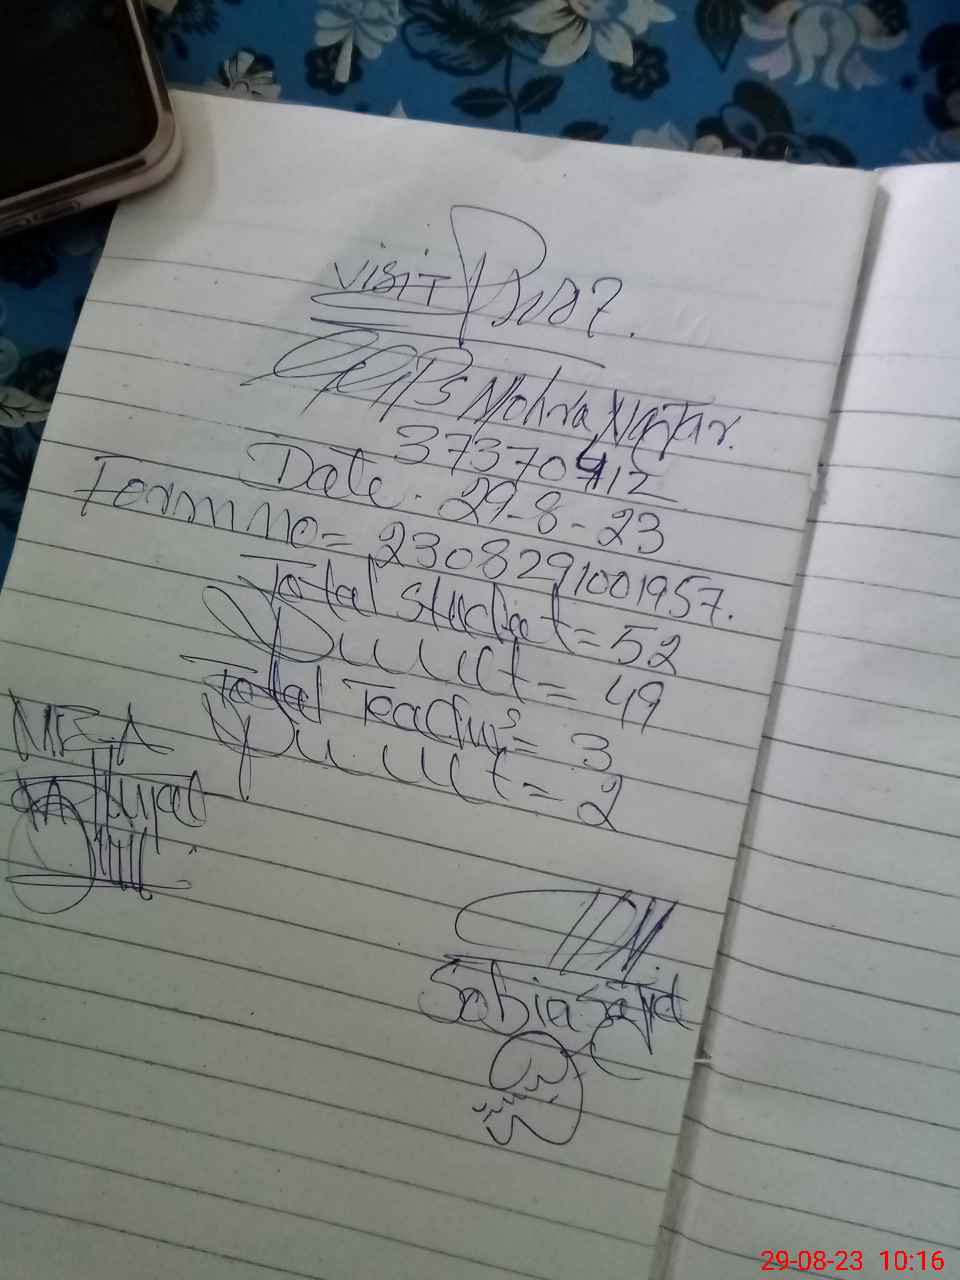 visit
GGPS Mohra Najjar.
37370412
Date. 29-8-23
Form no= 2308291001957.
Total student = 52
Present = 49
Total Teachers = 3
Present = 2
MEA
Sobia Sajid
29-08-23 10:16